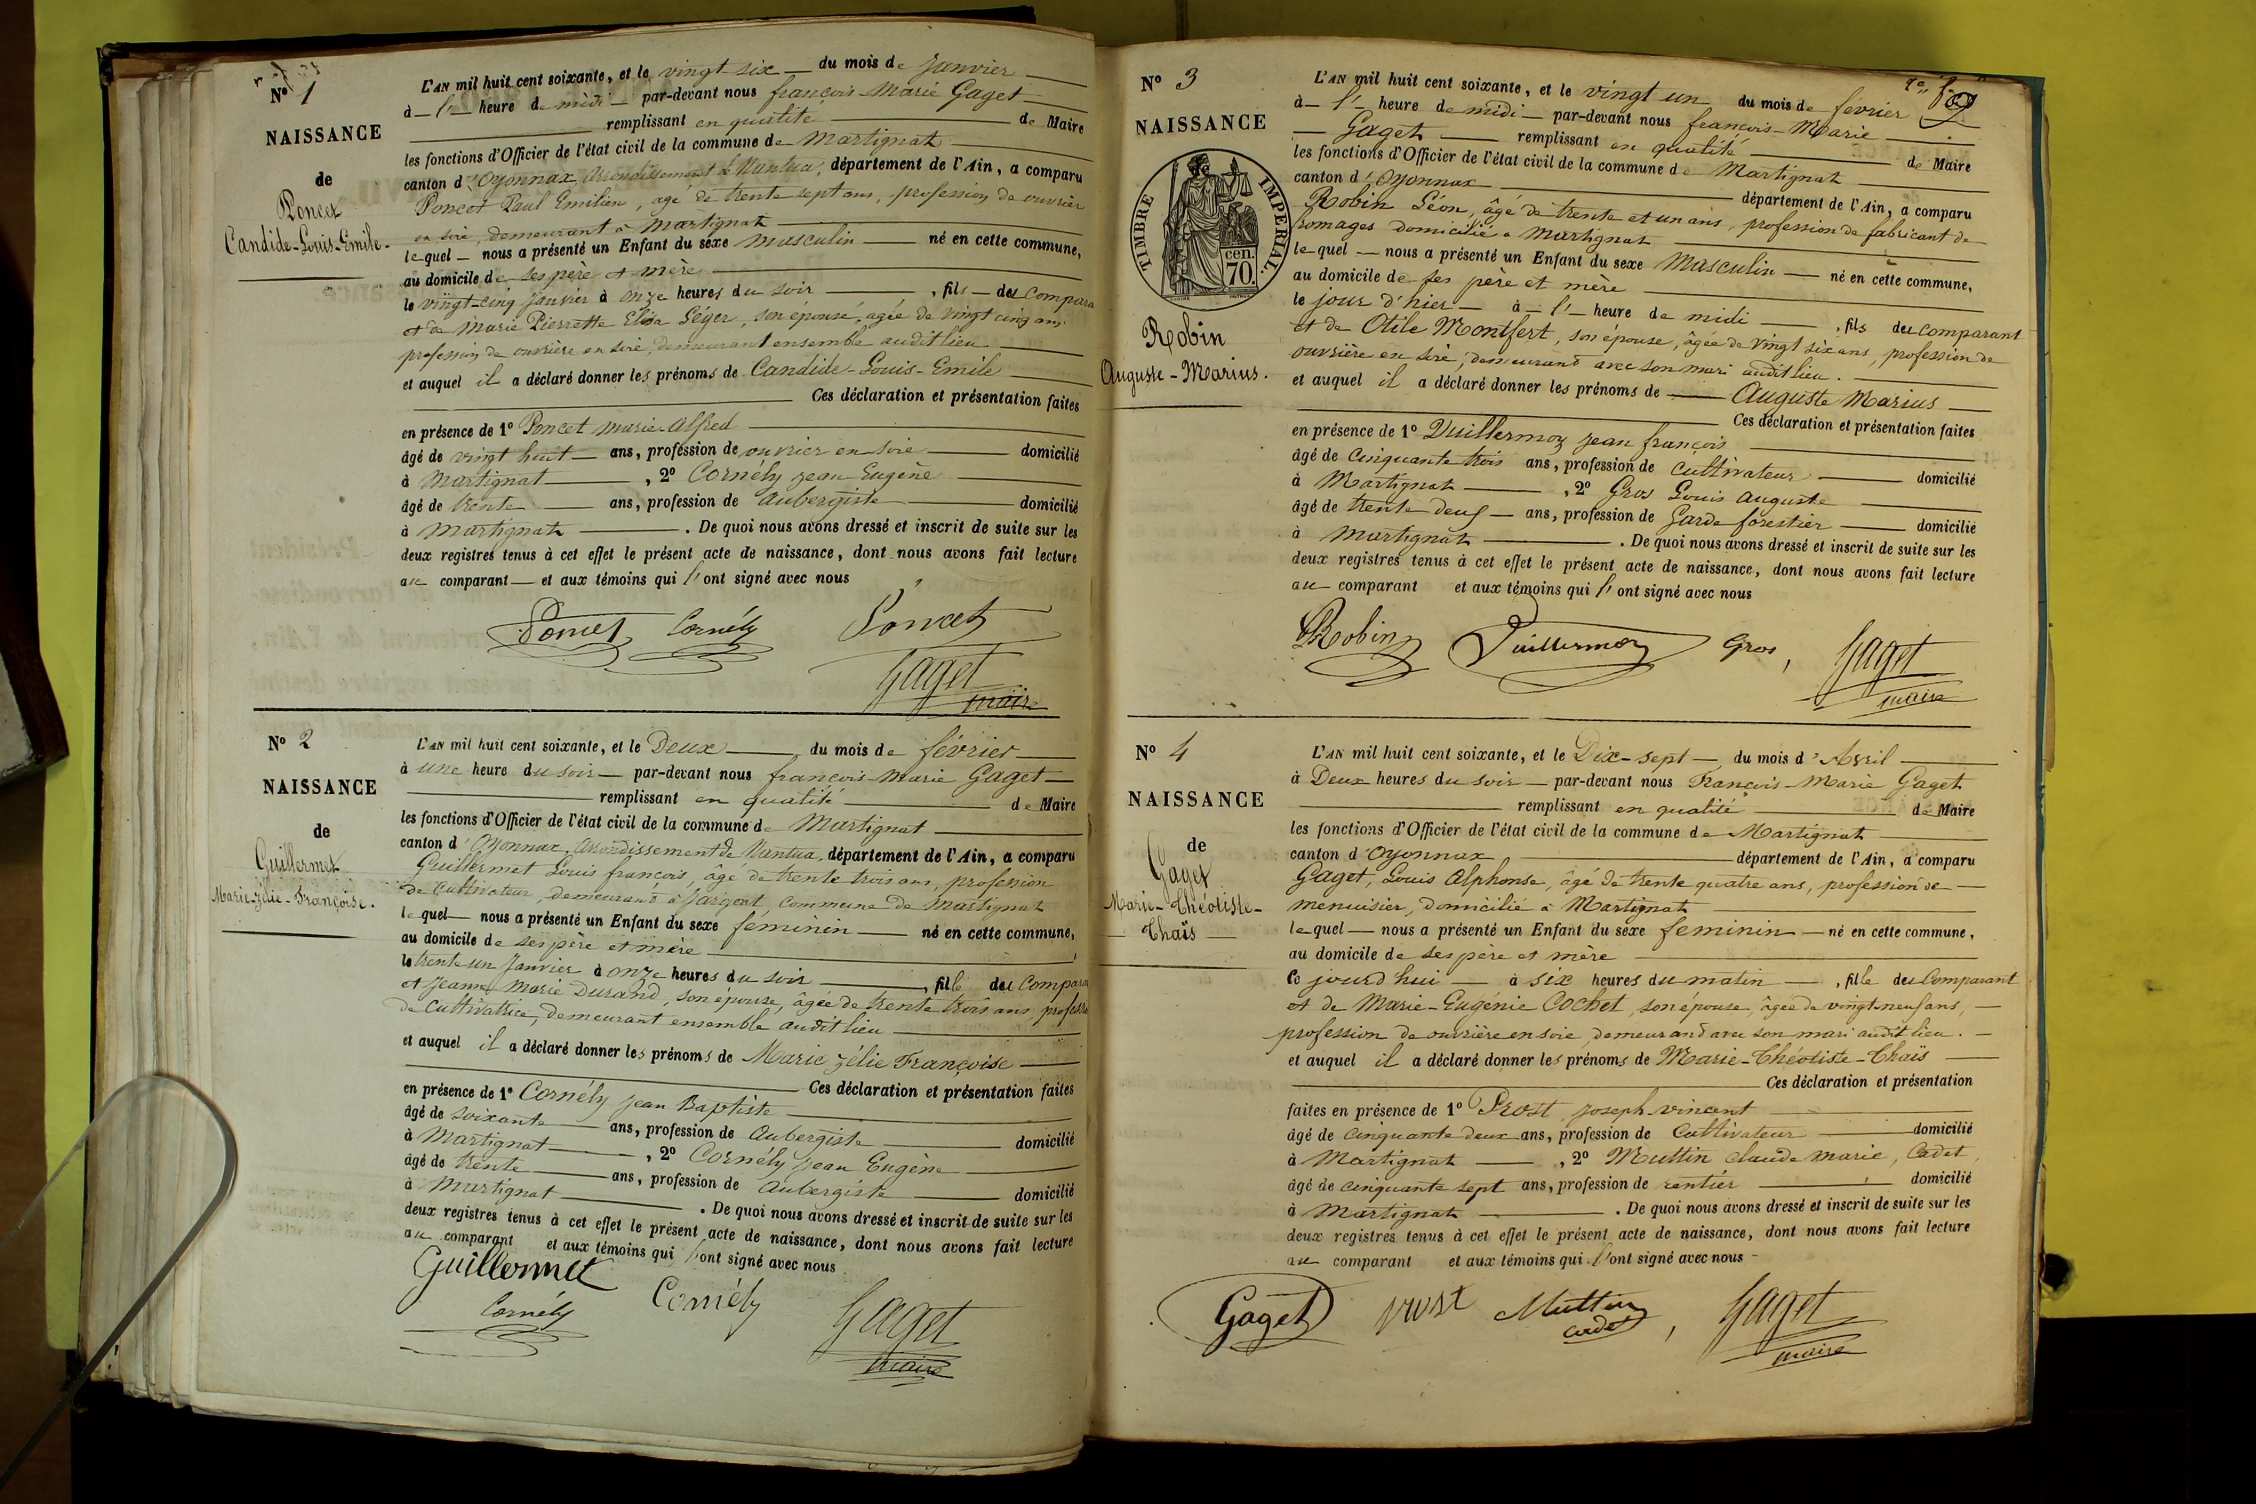 N° 1
NAISSANCE
de
Poncet
Candide-Louis-Emile.
L'AN mil huit cent soixante, et le vingt six du mois de Janvier
à l' heure de midi par-devant nous françois Marie Gaget
remplissant en qualité de Maire
les fonctions d'Officier de l'état civil de la commune de Martignat
canton d'Oyonnax, arrondissement de Nantua, département de l'Ain, a comparu
Poncet Paul Emilien, agé de trente sept ans, profession de ouvrier
en soie, demeurant à Martignat
lequel nous a présenté un Enfant du sexe masculin né en cette commune,
au domicile de ses père et mère
le vingt-cinq Janvier à onze heures du soir, fils du compara
et de Marie Pierrette Elisa Léger, son épouse, agée de vingt cinq ans
profession de ouvrière en soie, demeurant ensemble audit lieu
et auquel il a déclaré donner les prénoms de Candide-Louis-Emile
Ces déclaration et présentation faites
en présence de 1° Poncet marie Alfred
âgé de vingt huit ans, profession de ouvrier en soie domicilié
à Martignat, 2° Cornély jean Eugène
âgé de trente ans, profession de aubergiste domicilié
à Martignat. De quoi nous avons dressé et inscrit de suite sur les
deux registres tenus à cet effet le présent acte de naissance, dont nous avons fait lecture
au comparant et aux témoins qui l'ont signé avec nous
Poncet Cornély Poncet
Gaget
maire
N° 2
NAISSANCE
de
Guillermet
Marie-Zélie-Françoise.
L'AN mil huit cent soixante, et le Deux du mois de février
à une heure du soir par-devant nous françois Marie Gaget
remplissant en qualité de Maire
les fonctions d'Officier de l'état civil de la commune de Martignat
canton d'Oyonnax, arrondissement de Nantua, département de l'Ain, a comparu
Guillermet Louis françois, âgé de trente trois ans, profession
de cultivateur, demeurant à Jargeat, commune de Martignat
lequel nous a présenté un Enfant du sexe féminin né en cette commune,
au domicile de ses père et mère
le trente un Janvier à onze heures du soir, fille du compara
et Jeanne Marie Durand, son épouse, âgée de trente trois ans, profession
de cultivatrice, demeurant ensemble audit lieu
et auquel il a déclaré donner les prénoms de Marie Zélie Françoise
Ces déclaration et présentation faites
en présence de 1° Cornély jean Baptiste
âgé de soixante ans, profession de Aubergiste domicilié
à Martignat, 2° Cornély jean Eugène
âgé de trente ans, profession de Aubergiste domicilié
à Martignat. De quoi nous avons dressé et inscrit de suite sur les
deux registres tenus à cet effet le présent acte de naissance, dont nous avons fait lecture
au comparant et aux témoins qui l'ont signé avec nous
Guillermet
Cornély Cornély Gaget
maire
N° 3
NAISSANCE
TIMBRE IMPERIAL.
cen.
70.
Robin
Auguste-Marius.
L'AN mil huit cent soixante, et le vingt un du mois de fevrier
à l' heure de midi par-devant nous françois-Marie
Gaget remplissant en qualité de Maire
les fonctions d'Officier de l'état civil de la commune de Martignat
canton d'Oyonnax département de l'Ain, a comparu
Robin Léon, âgé de trente et un ans, profession de fabricant de
fromages domicilié à Martignat
lequel nous a présenté un Enfant du sexe Masculin né en cette commune,
au domicile de ses père et mère
le jour d'hier à l' heure de midi, fils du comparant
et de Otile Montfert, son épouse, âgée de vingt six ans, profession de
ouvrière en soie, demeurand avec son mari audit lieu.
et auquel il a déclaré donner les prénoms de Auguste Marius
Ces déclaration et présentation faites
en présence de 1° Duillermoz jean françois
âgé de cinquante trois ans, profession de cultivateur domicilié
à Martignat, 2° Gros Louis auguste
âgé de trente deux ans, profession de Garde forestier domicilié
à Martignat. De quoi nous avons dressé et inscrit de suite sur les
deux registres tenus à cet effet le présent acte de naissance, dont nous avons fait lecture
au comparant et aux témoins qui l'ont signé avec nous
Robin Duillermoz Gros, Gaget
maire
N° 4
NAISSANCE
de
Gaget
Marie-Théotiste-
Thaïs
L'AN mil huit cent soixante, et le Dix-sept du mois d'Avril
à Deux heures du soir par-devant nous François-Marie Gaget
remplissant en qualité de Maire
les fonctions d'Officier de l'état civil de la commune de Martignat
canton d'Oyonnax département de l'Ain, a comparu
Gaget, Louis Alphonse, âgé de trente quatre ans, profession de
menuisier, domicilié à Martignat
lequel nous a présenté un Enfant du sexe feminin né en cette commune,
au domicile de ses père et mère
Ce jourd'hui à six heures du matin, fille du Comparant
et de Marie-Eugénie Cochet, son épouse, âgée de vingt-neuf ans,
profession de ouvrière en soie, demeurand avec son mari audit lieu.
et auquel il a déclaré donner les prénoms de Marie-Théotiste-Thaïs
Ces déclaration et présentation
faites en présence de 1° Prost joseph-vincent
âgé de cinquante deux ans, profession de Cultivateur domicilié
à Martignat, 2° Muttin claude marie, Cadet,
âgé de cinquante sept ans, profession de rentier domicilié
à Martignat. De quoi nous avons dressé et inscrit de suite sur les
deux registres tenus à cet effet le présent acte de naissance, dont nous avons fait lecture
au comparant et aux témoins qui l'ont signé avec nous
Gaget prost Muttin
cadet, Gaget
maire